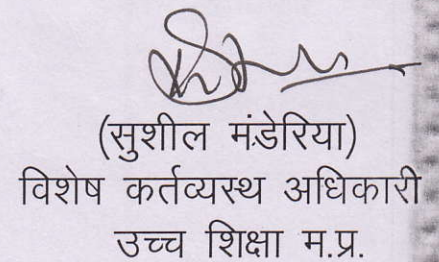 (सुशील मंडेरिया)
विशेष कर्तव्यस्थ अधिकारी
उच्च शिक्षा म.प्र.